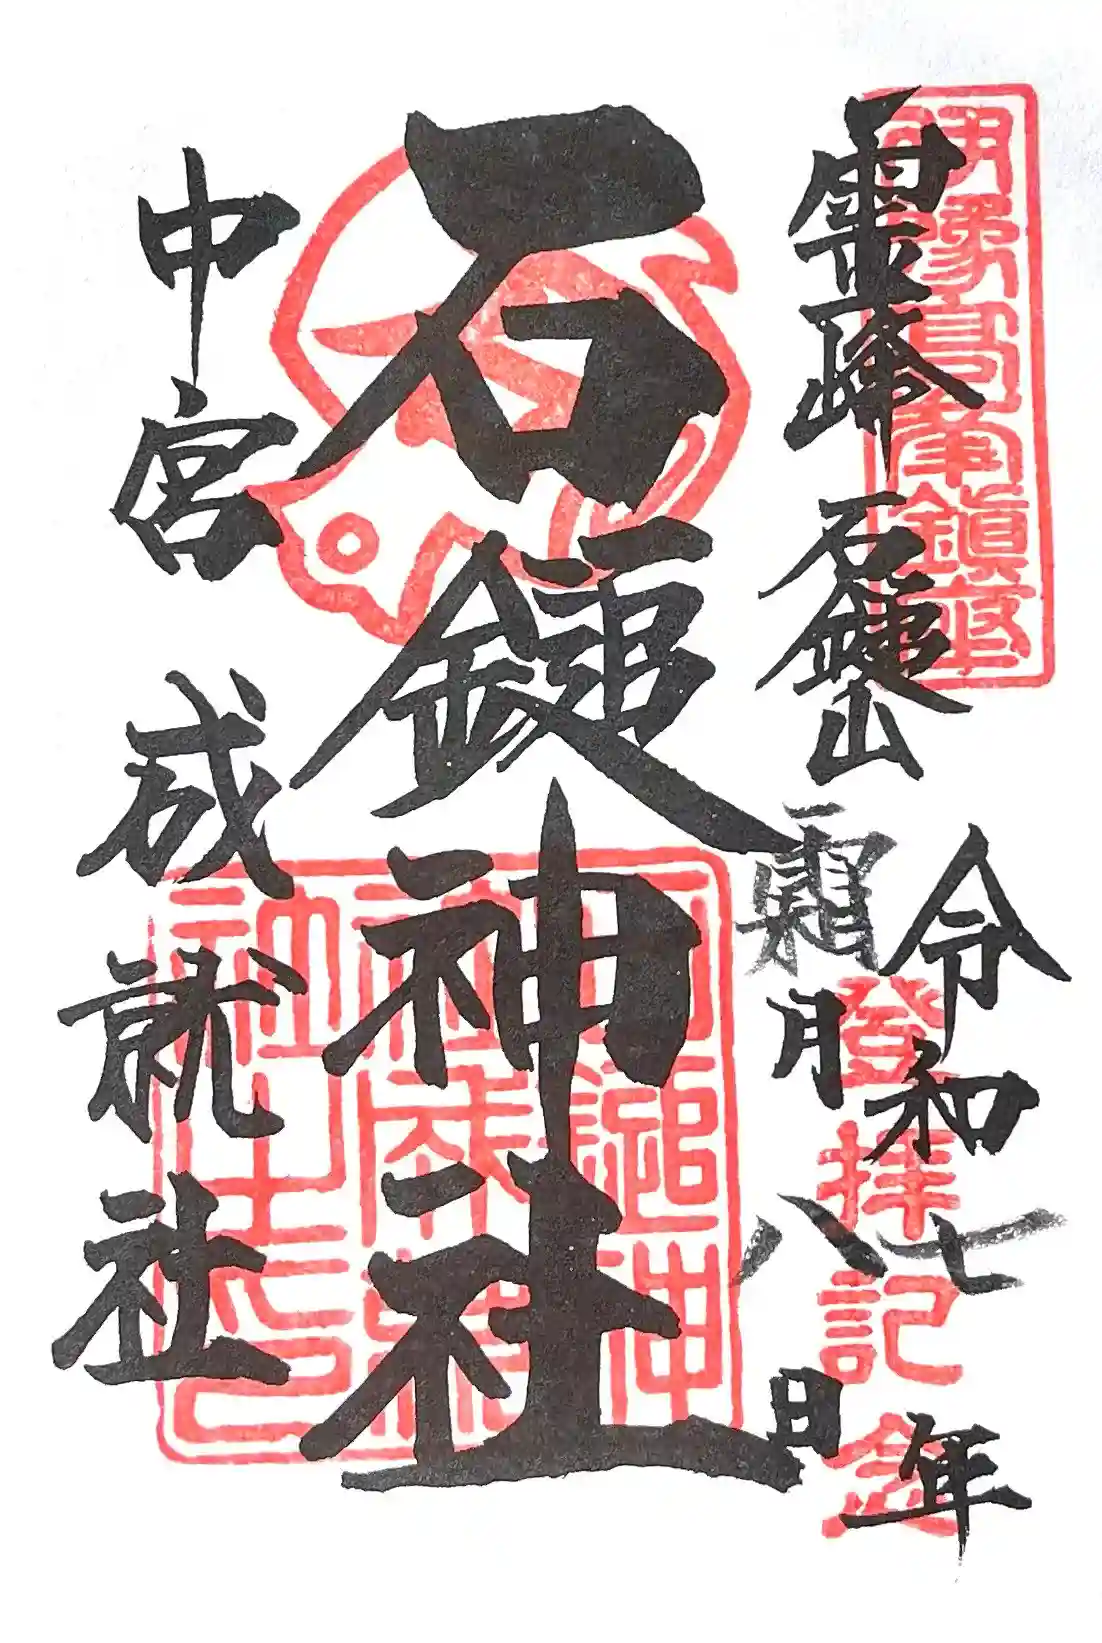 伊豫高嶺鎮座
霊峰 石鎚山
令和七年
霜月八日
登拝記念
石鎚神社
中宮 成就社